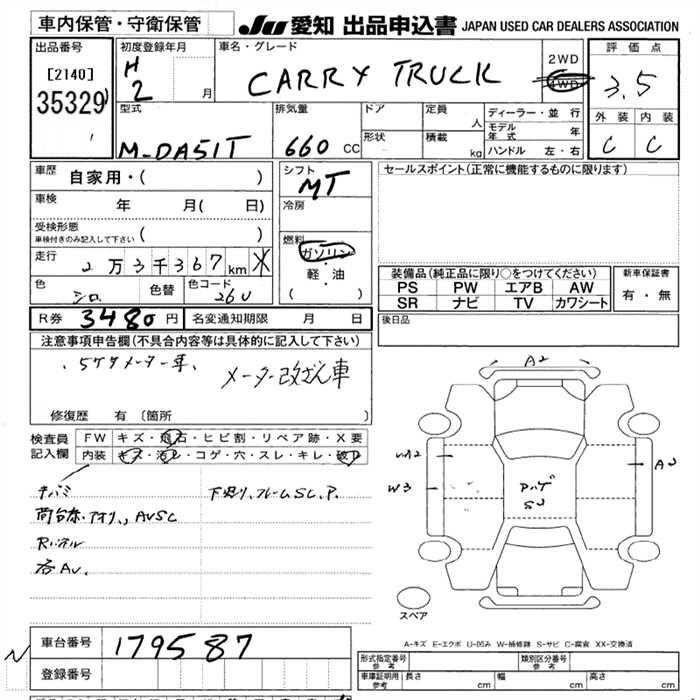 車内保管・守衛保管
JU 愛知 出品申込書 JAPAN USED CAR DEALERS ASSOCIATION
出品番号
[2140]
35329
初度登録年月
H
2 月
車名・グレード
CARRY TRUCK
2WD
4WD
評価点
3.5
外装 内装
C C
型式
M-DA51T
排気量
660 CC
ドア
形状
定員
人
積載
kg
ディーラー・並行
モデル年式 年
ハンドル 左・右
車歴
自家用・( )
車検
年 月( 日)
受検形態
車検付きのみ記入して下さい ( )
走行
2万3千367km
色
シロ
色替
色コード
26U
シフト
MT
冷房
燃料
ガソリン
・
軽・油
( )
セールスポイント(正常に機能するものに限ります)
装備品(純正品に限り○をつけてください)
PS PW エアB AW
SR ナビ TV カワシート
新車保証書
有・無
R券 3480円
名変通知期限 月 日
後日品
注意事項申告欄(不具合内容等は具体的に記入して下さい)
5ケタメーター車
メーター改ざん車
修復歴 有 〔箇所 〕
検査員
記入欄
FW キズ・飛石・ヒビ割・リペア跡・X要
内装 キズ・汚レ・コゲ・穴・スレ・キレ・破レ
キバミ
下廻リ、フレームSC、P.
荷台、アオリ、AUSC
各AU.
A2
A2
W3
A2
スペア
A-キズ E-エクボ U-凹み W-補修跡 S-サビ C-腐食 XX-交換済
車台番号
179587
登録番号
形式指定番号
参考
類別区分番号
参考
車庫証明用
参考
長さ cm
幅 cm
高さ cm